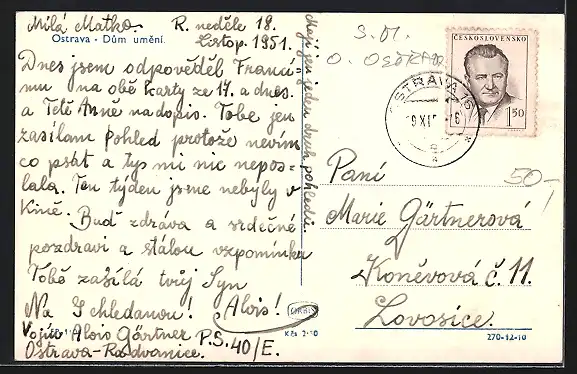 Milá Matko. R. neděle 18.
Ostrava • Dům umění. Listop. 1951.
Dnes jsem odpověděl Franci-
mu na obě karty ze 17. a dnes.
a Tetě Anně na dopis. Tobe jen
zasílám Pohled protože nevím
co psát a tys mi nic nepos-
lala. Ten týden jsme nebyly v
Kině.
Buď zdráva a srdečné
pozdravi a stálou vzpomínku
Tobě zasílá tvůj Syn
Na Schledanou! Alois!
Vojín Alois Gärtner P.S. 40/E.
Ostrava-Radvanice.
Mají jen jeden druh pohledů.
ORBIS
Kčs 2·10
S. M.
O.
ČESKOSLOVENSKO
1 50
OSTRAVA 15
Paní
50,-
Marie Gärtnerová
Koněvová č. 11.
Lovosice.
270-12-10